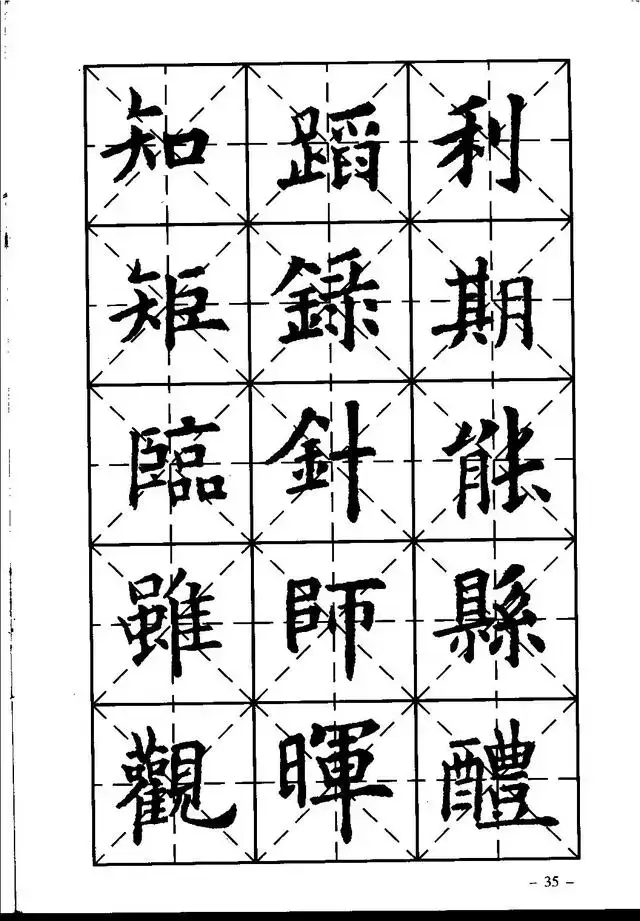 利期能縣醴
蹈錄針師暉
知矩臨雖觀
- 35 -